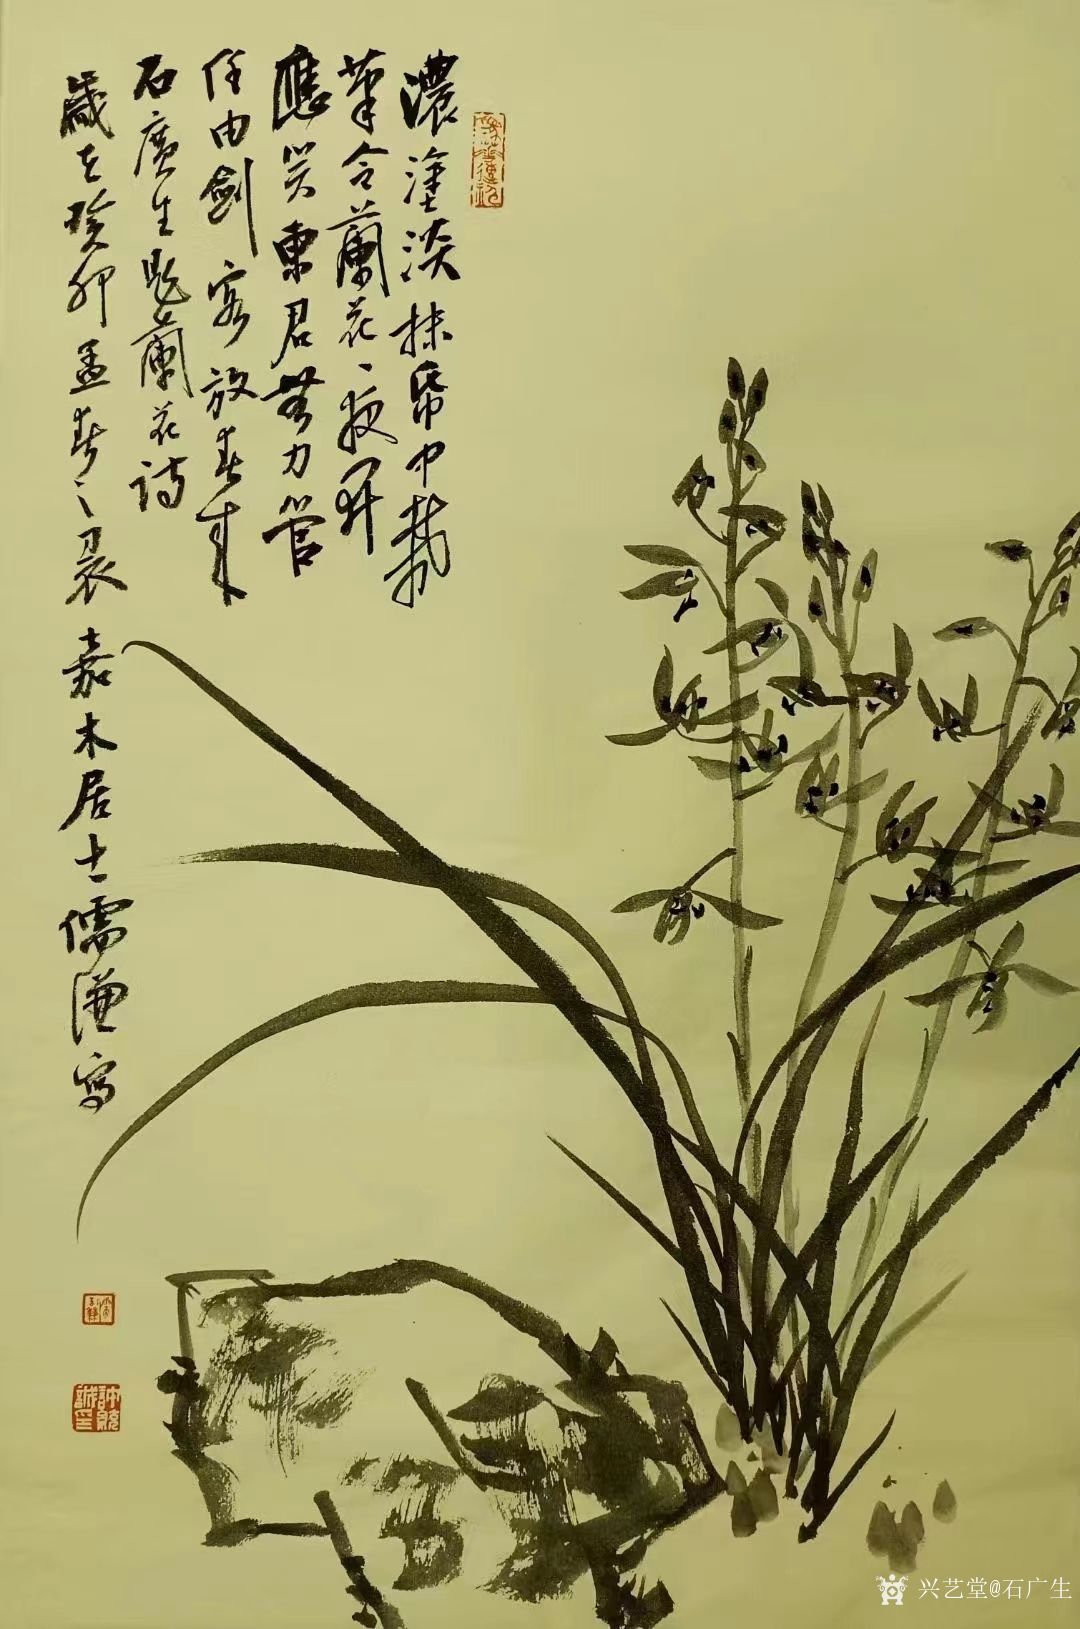 濃塗淡抹帋中栽
筆令蘭花一夜開
應笑東君無力管
任由劍客放春來
石廣生題蘭花詩
歲在癸卯孟春之晨嘉木居士儒謙寫
兴艺堂@石广生